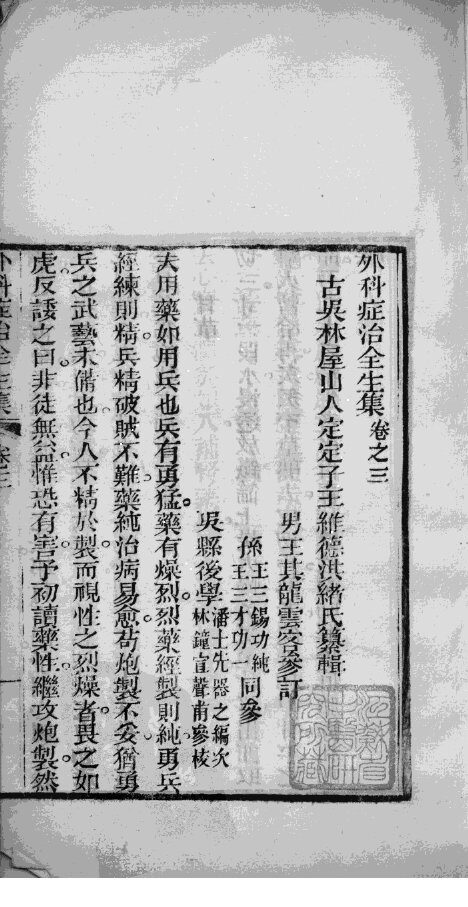 外科症治全生集 卷之三
古吳林屋山人定定子王維德洪緒氏纂輯
男王其龍雲客參訂
孫王三錫功純 王三才功一 同參
吳縣後學潘士先器之編次 林鐘宣聲甫參校
夫用藥如用兵也兵有勇猛藥有燥烈烈藥經製則純勇兵
經練則精兵精破賊不難藥純治病易愈苟炮製不妥猶勇
兵之武藝未備也今人不精於製而視性之烈燥者畏之如
虎反諉之曰非徒無益惟恐有害予初讀藥性繼攻炮製然
外科症治全生集 卷三 一